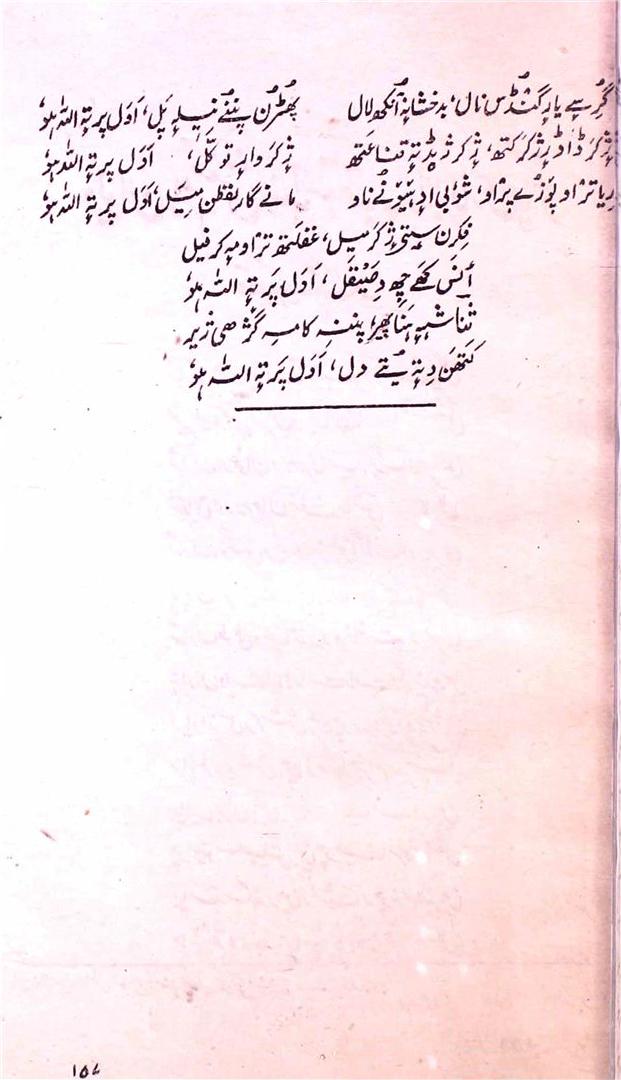 گر سے یار گنڈس نال، بدخشانہ آنکھ لال پھٹرُن پننے نیلہ پَل، اَوَل پر تہٕ اللہ ہو
ژٕ کر ڈاڈ پژکر کتھ، ژٕ کر ژیڈ تہٕ قناعتھ ژٕ کر وارٕ توکّل، اَوَل پر تہٕ اللہ ہو
ریا تراو پوزے پراو، شوٗبی اد ہیوٚنے ناو مانے گار لفظن میل، اَوَل پر تہٕ اللہ ہو
فکرن سیتی ژٕ کر میل، غفلتھ تراو مہ کر فیل
اَنَس کھے چھ دصیقل، اَوَل پر تہٕ اللہ ہو
ثناشیہ بناپھیرا پننہ کامہ گژھی زیر
کتھن دِتہٕ یتے دل، اَوَل پَر تہٕ اللہ ہو
۱۵۷